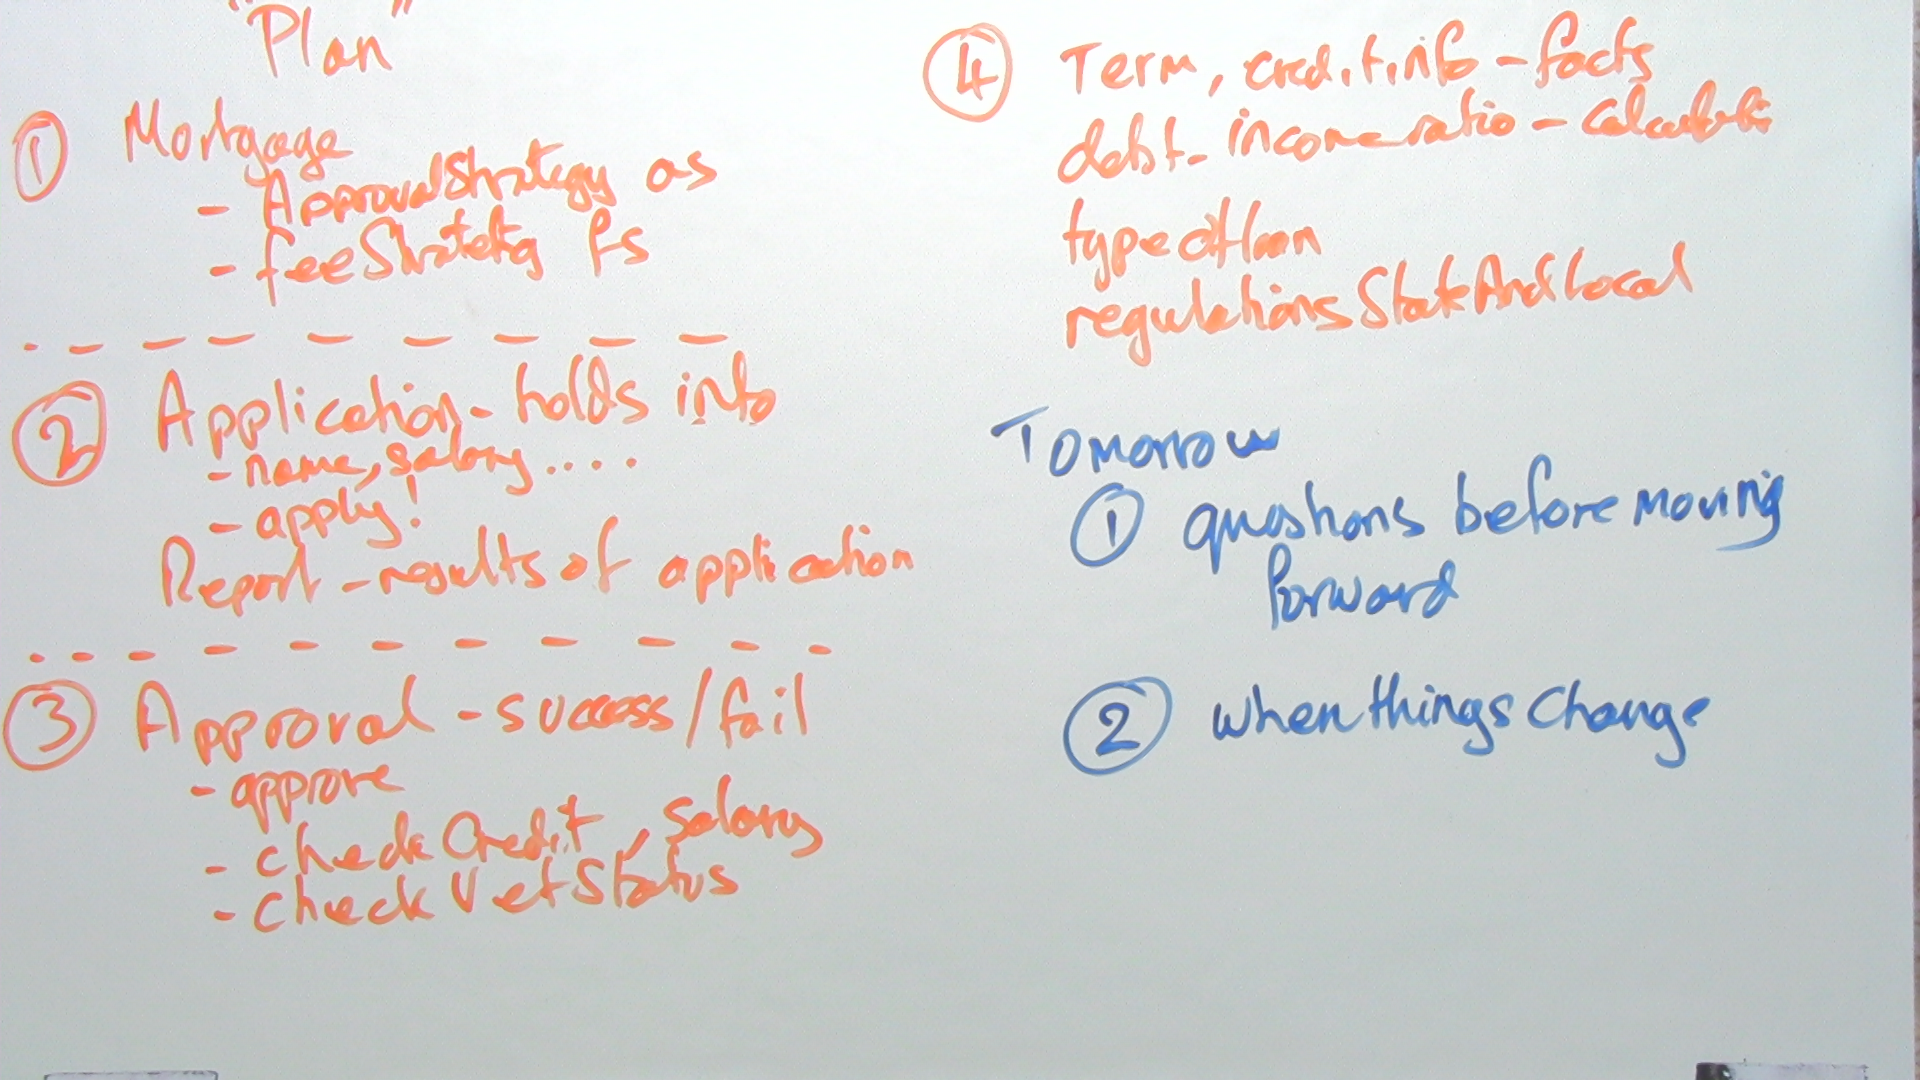 "Plan"
① Mortgage
- ApprovalStrategy as
- feeStrategy fs
② Application - holds info
- name, salary ....
- apply!
Report - results of application
③ Approval - success/fail
- approve
- checkCredit, salary
- checkVetStatus
④ Term, credit info - facts
debt-income ratio - calculation
typeofloan
regulationsStateAndLocal
Tomorrow
① questions before moving
forward
② when things change